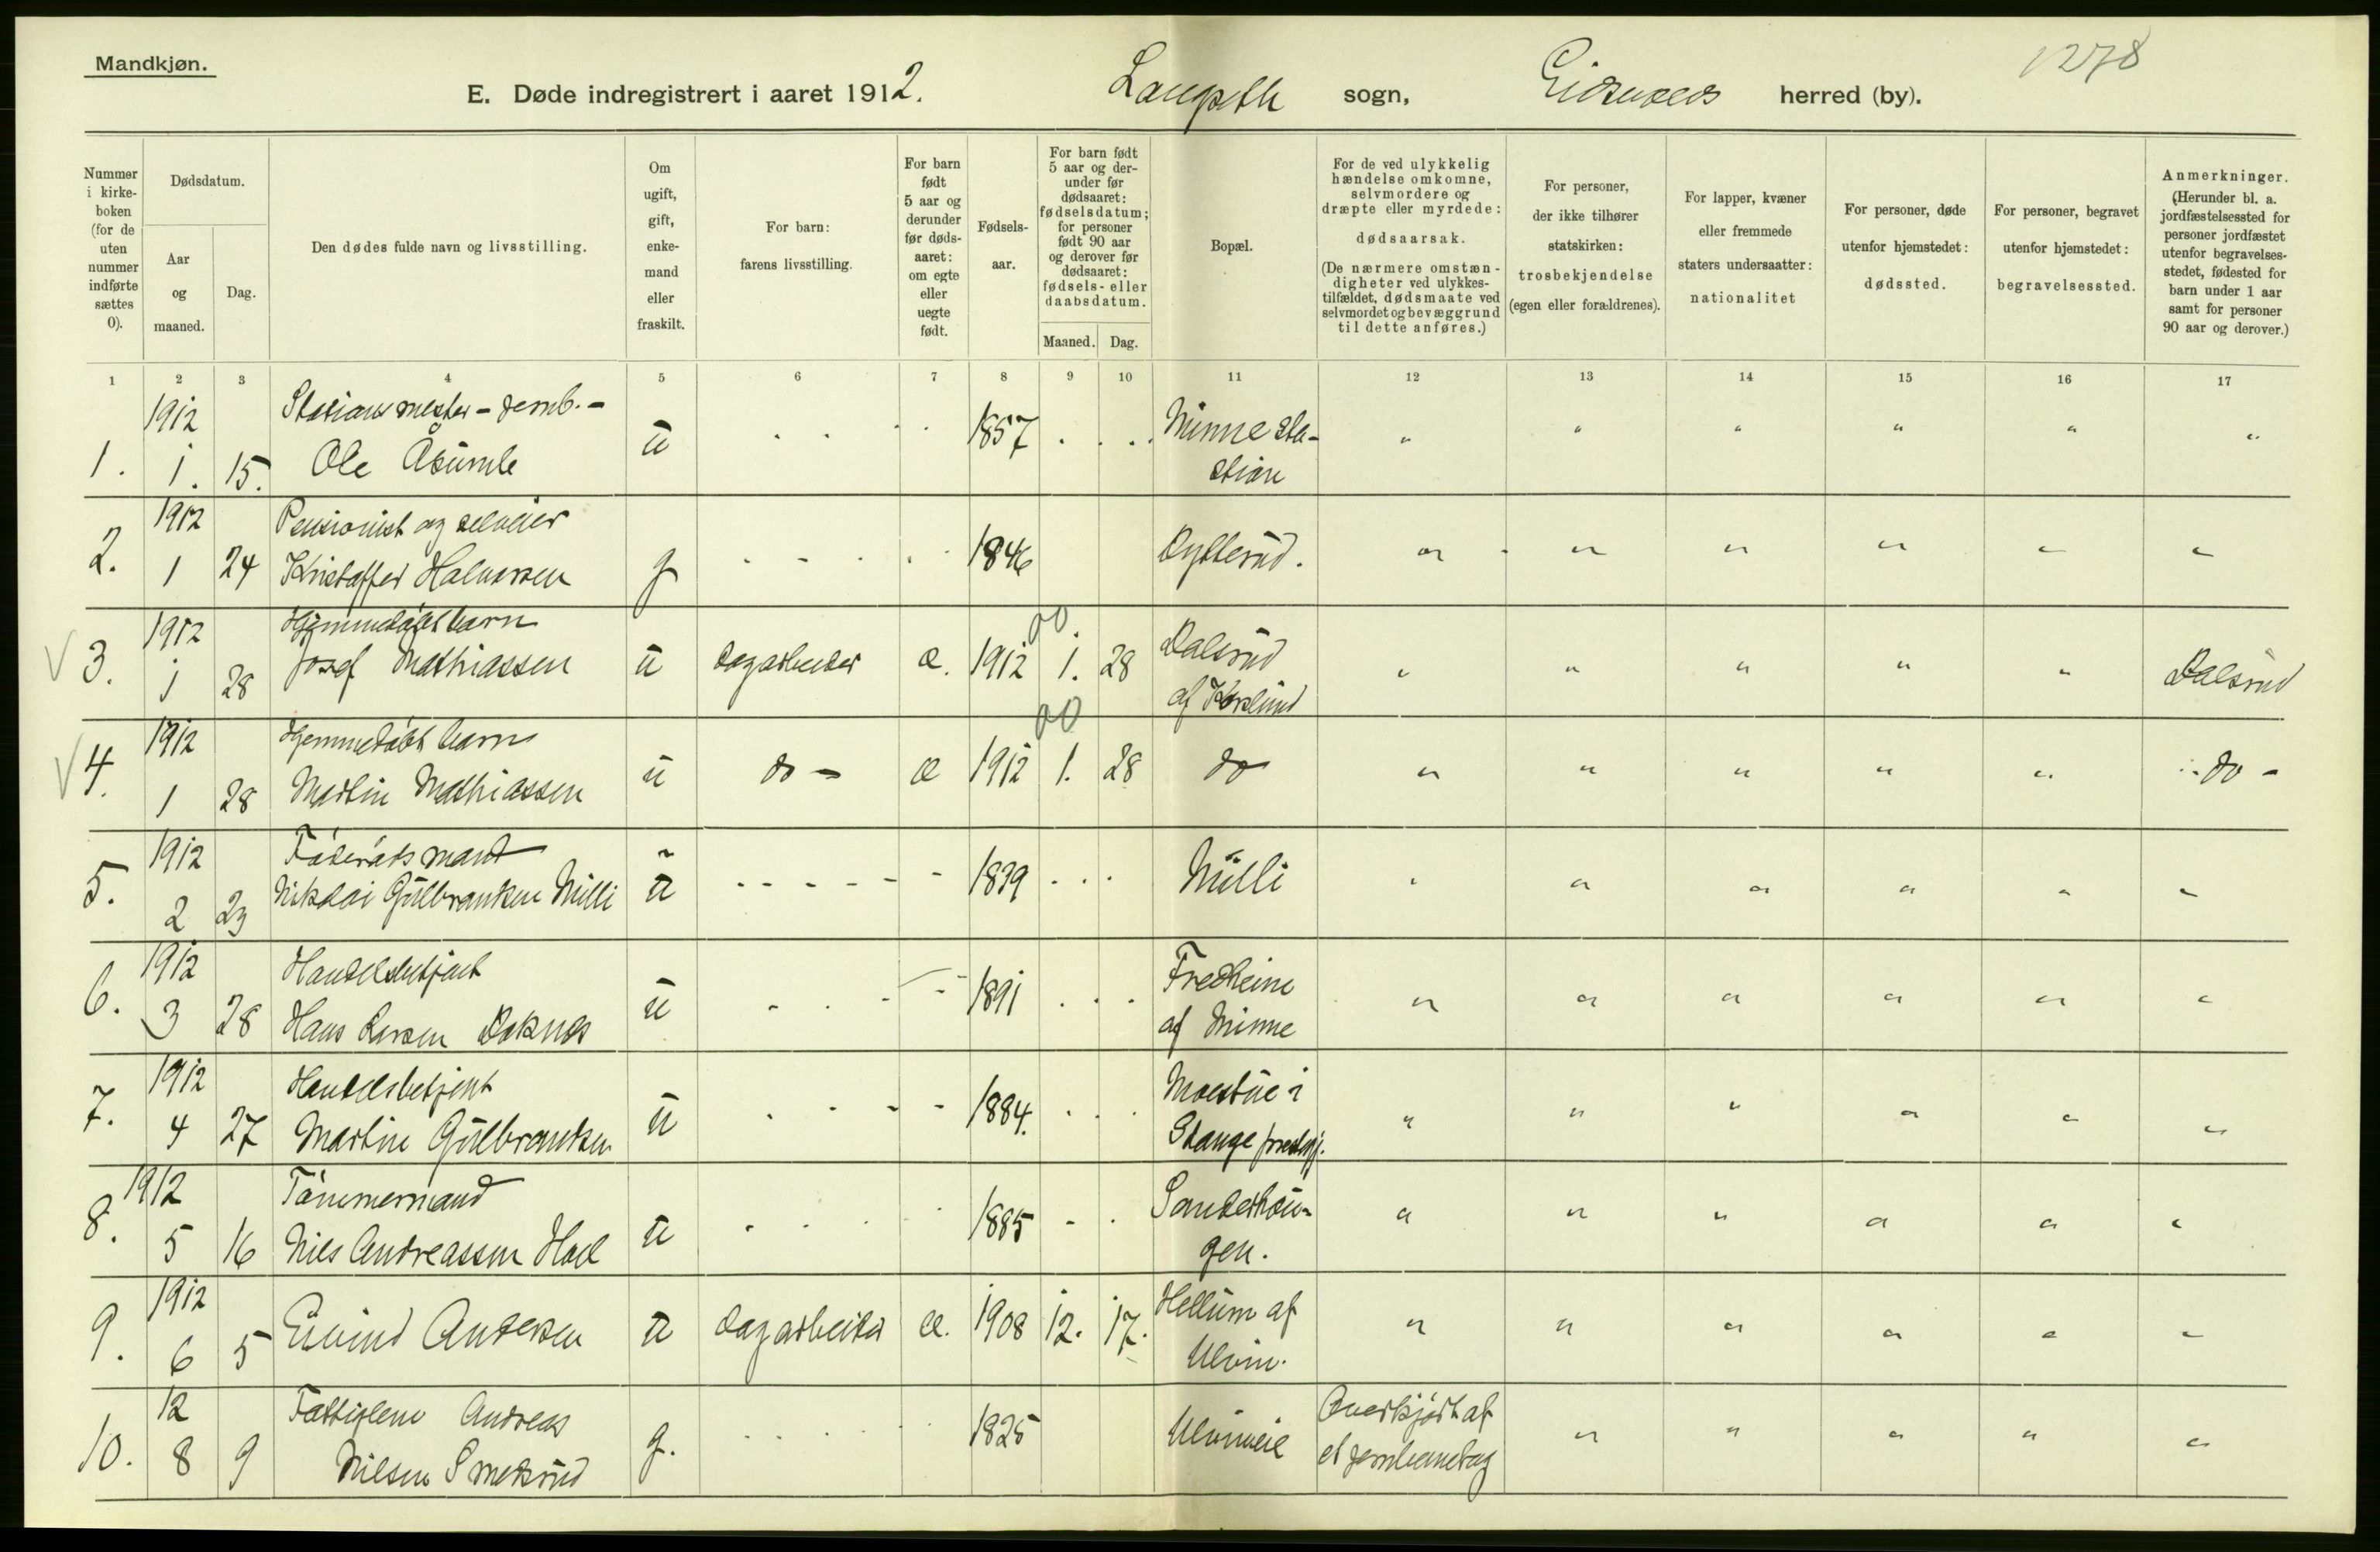 Mandkjøn.
1278
E. Døde indregistrert i aaret 1912. Langseth sogn, Eidsvolds herred (by).
Nummer i kirkeboken (for de uten nummer indførte sættes 0).
Dødsdatum.
Aar og maaned.
Dag.
Den dødes fulde navn og livsstilling.
Om ugift, gift, enkemand eller fraskilt.
For barn: farens livsstilling.
For barn født 5 aar og derunder før dødsaaret: om egte eller uegte født.
Fødselsaar.
For barn født 5 aar og derunder før dødsaaret: fødselsdatum; for personer født 90 aar og derover før dødsaaret: fødsels- eller daabsdatum.
Maaned. Dag.
Bopæl.
For de ved ulykkelig hændelse omkomne, selvmordere og dræpte eller myrdede: dødsaarsak. (De nærmere omstændigheter ved ulykkestilfældet, dødsmaate ved selvmordet og bevæggrund til dette anføres.)
For personer, der ikke tilhører statskirken: trosbekjendelse (egen eller forældrenes).
For lapper, kvæner eller fremmede staters undersaatter: nationalitet
For personer, døde utenfor hjemstedet: dødssted.
For personer, begravet utenfor hjemstedet: begravelsessted.
Anmerkninger. (Herunder bl. a. jordfæstelsessted for personer jordfæstet utenfor begravelsesstedet, fødested for barn under 1 aar samt for personer 90 aar og derover.)
1 2 3 4 5 6 7 8 9 10 11 12 13 14 15 16 17
1912 Stationsmester - jernb. -
1. 1. 15. Ole Åsumle u 1857 Minne sta-
stion
1912 Pensionist og selveier
2. 1 24 Kristoffer Halvorsen g 1846 Dytterud.
1912 Hjemmedøbt barn
3. 1 28 Josef Mathiassen u dagarbeider e. 1912 1. 28 Dalsrud Dalsrud
af
1912 Hjemmedøbt barn
4. 1 28 Martin Mathiassen u do - e 1912 1. 28 do - do -
1912 Føderådsmand
5. 2 23 Nikolai Gulbrandsen Milli u 1839 Milli
1912 Handelsbetjent
6. 3 28 Hans Larsen Doknes u 1891 Fredheim
af Minne
1912 Handelsbetjent
7. 4 27 Martin Gulbrandsen u 1884. Moestue i
Stange prestegj.
1912 Tømmermand
8. 5 16 Nils Andreassen Hol u 1885 Sanderhau-
gen.
1912
9. 6 5 Eivind Andersen u dagarbeider e. 1908 12. 17. Hellum af
Ulvin.
12 Fattiglem Andreas Overkjørt af
10. 8 9 Nilsen Smedsrud g. 1825 Ulvinveie et jernbanetog